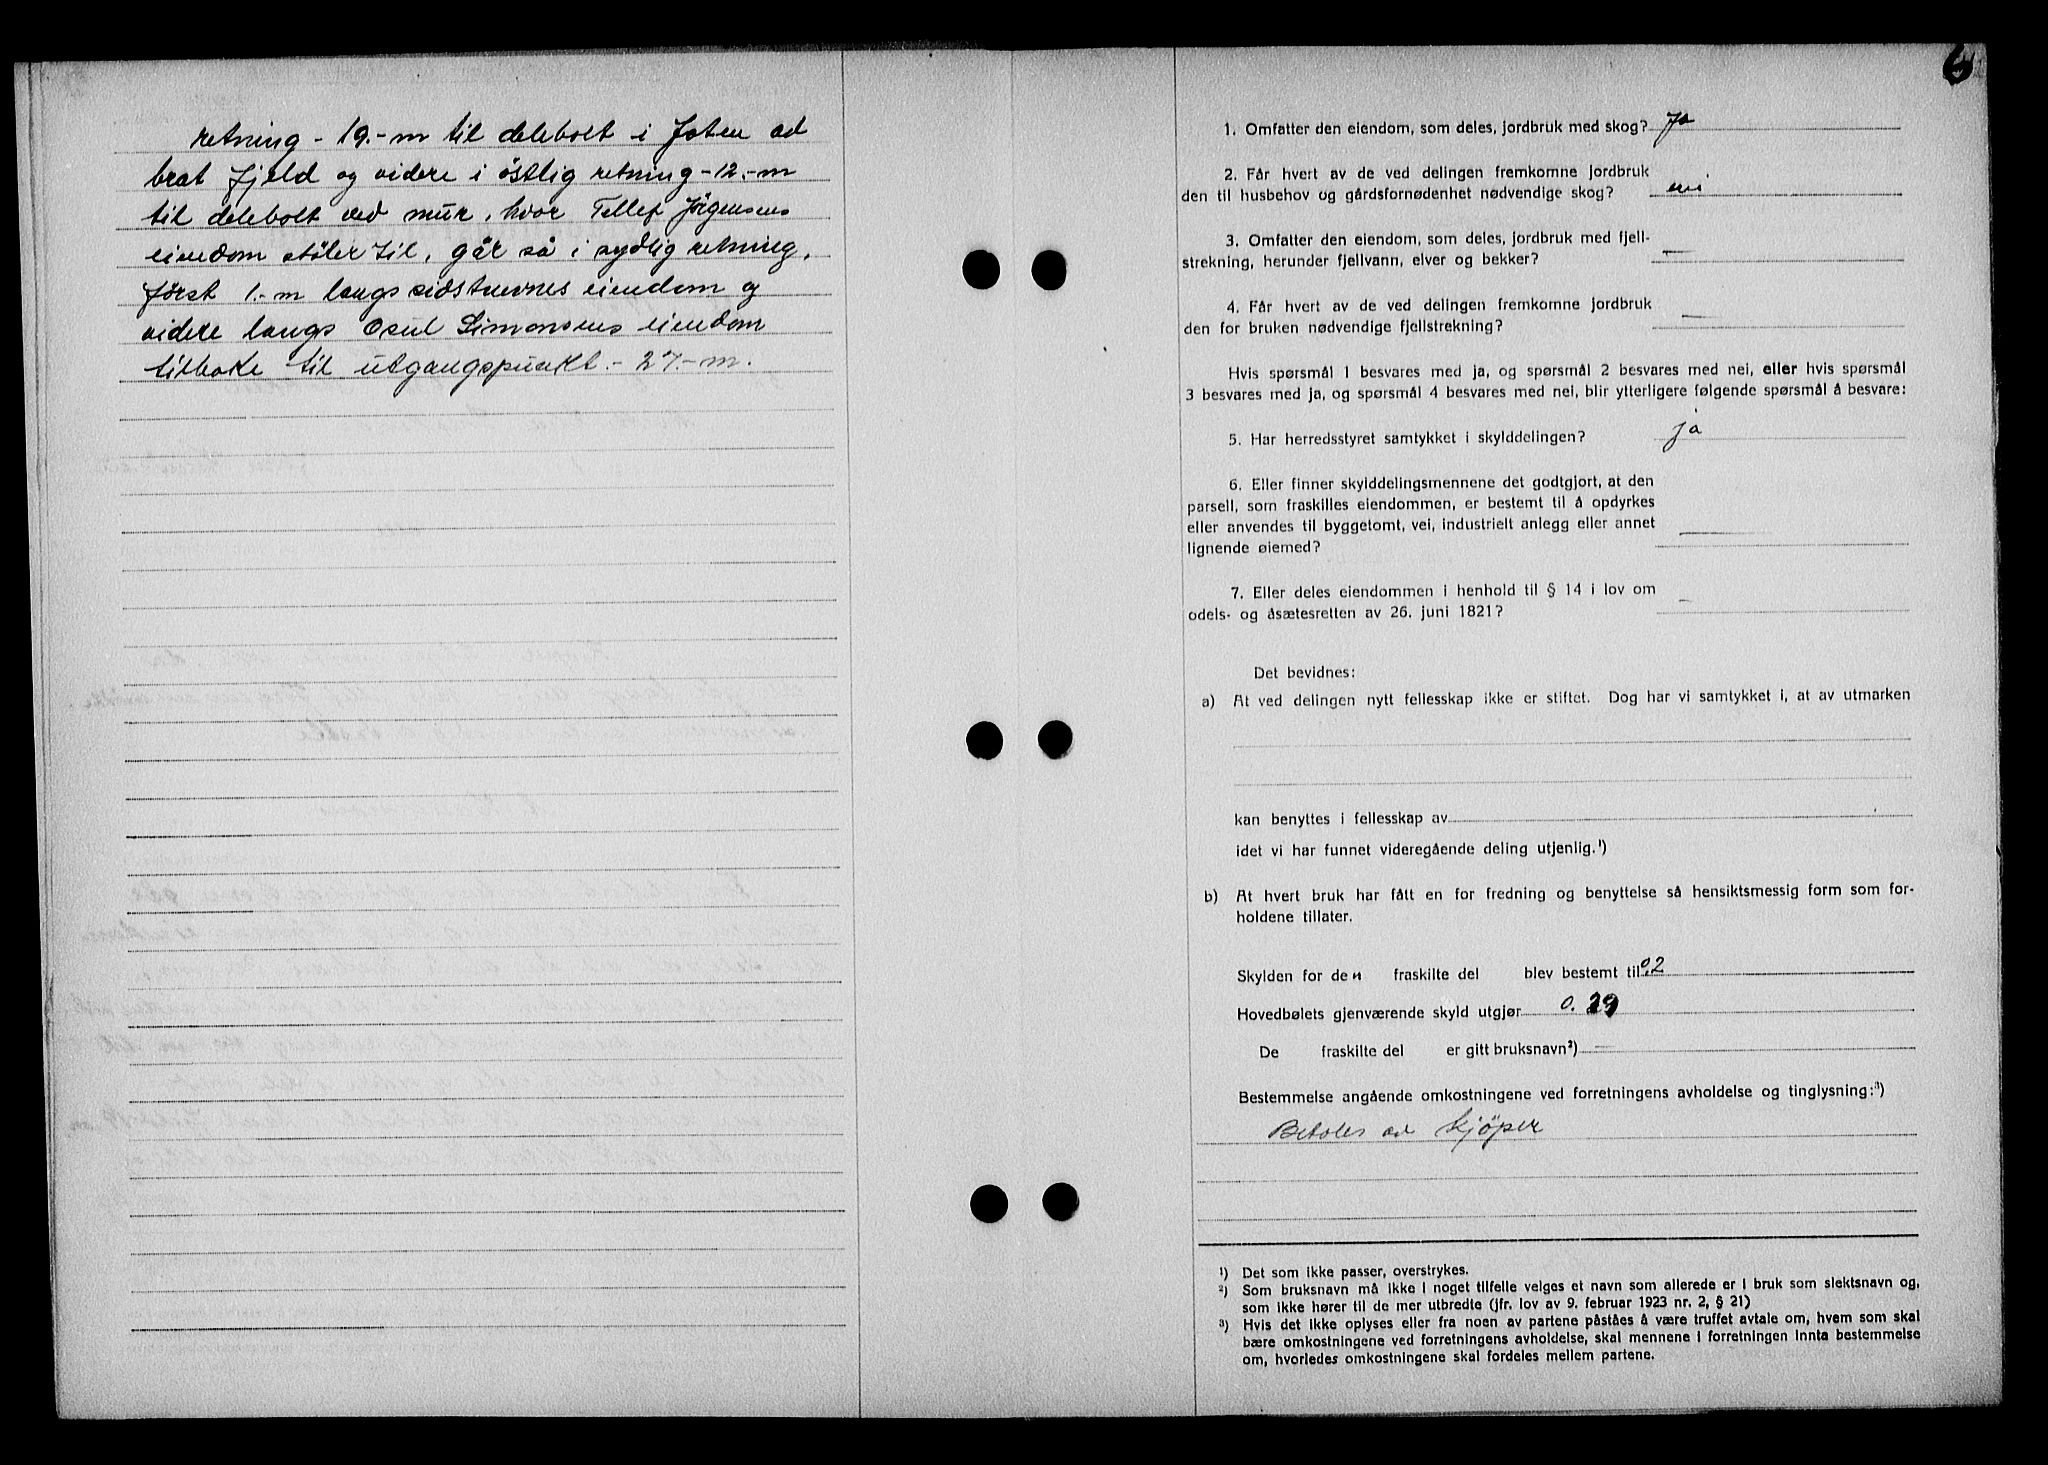 retning - 19.-m til delebolt i Foten av
brat fjeld og videre i östlig retning - 12.-m
til delebolt ved mur, hvor Tellef Jörgensens
eiendom støter til, går så i sydlig retning,
först 1.-m langs sidstnevnes eiendom og
videre langs Osul Simonsens eiendom
tilbake til utgangspunkt. - 27.-m.
6
1. Omfatter den eiendom, som deles, jordbruk med skog? Ja
2. Får hvert av de ved delingen fremkomne jordbruk
den til husbehov og gårdsfornødenhet nødvendige skog? nei
3. Omfatter den eiendom, som deles, jordbruk med fjell-
strekning, herunder fjellvann, elver og bekker? —
4. Får hvert av de ved delingen fremkomne jordbruk
den for bruken nødvendige fjellstrekning? —
Hvis spørsmål 1 besvares med ja, og spørsmål 2 besvares med nei, eller hvis spørsmål
3 besvares med ja, og spørsmål 4 besvares med nei, blir ytterligere følgende spørsmål å besvare:
5. Har herredsstyret samtykket i skylddelingen? ja
6. Eller finner skylddelingsmennene det godtgjort, at den
parsell, som fraskilles eiendommen, er bestemt til å opdyrkes
eller anvendes til byggetomt, vei, industrielt anlegg eller annet
lignende øiemed? —
7. Eller deles eiendommen i henhold til § 14 i lov om
odels- og åsætesretten av 26. juni 1821? —
Det bevidnes:
a) At ved delingen nytt fellesskap ikke er stiftet. Dog har vi samtykket i, at av utmarken
kan benyttes i fellesskap av
idet vi har funnet videregående deling utjenlig.¹)
b) At hvert bruk har fått en for fredning og benyttelse så hensiktsmessig form som for-
holdene tillater.
Skylden for den fraskilte del blev bestemt til 0,2
Hovedbølets gjenværende skyld utgjør 0.29
De fraskilte del er gitt bruksnavn²) —
Bestemmelse angående omkostningene ved forretningens avholdelse og tinglysning:³)
Betales av kjöper
¹) Det som ikke passer, overstrykes.
²) Som bruksnavn må ikke i noget tilfelle velges et navn som allerede er i bruk som slektsnavn og,
som ikke hører til de mer utbredte (jfr. lov av 9. februar 1923 nr. 2, § 21)
³) Hvis det ikke oplyses eller fra noen av partene påståes å være truffet avtale om, hvem som skal
bære omkostningene ved forretningens avholdelse, skal mennene i forretningen innta bestemmelse
om, hvorledes omkostningene skal fordeles mellem partene.